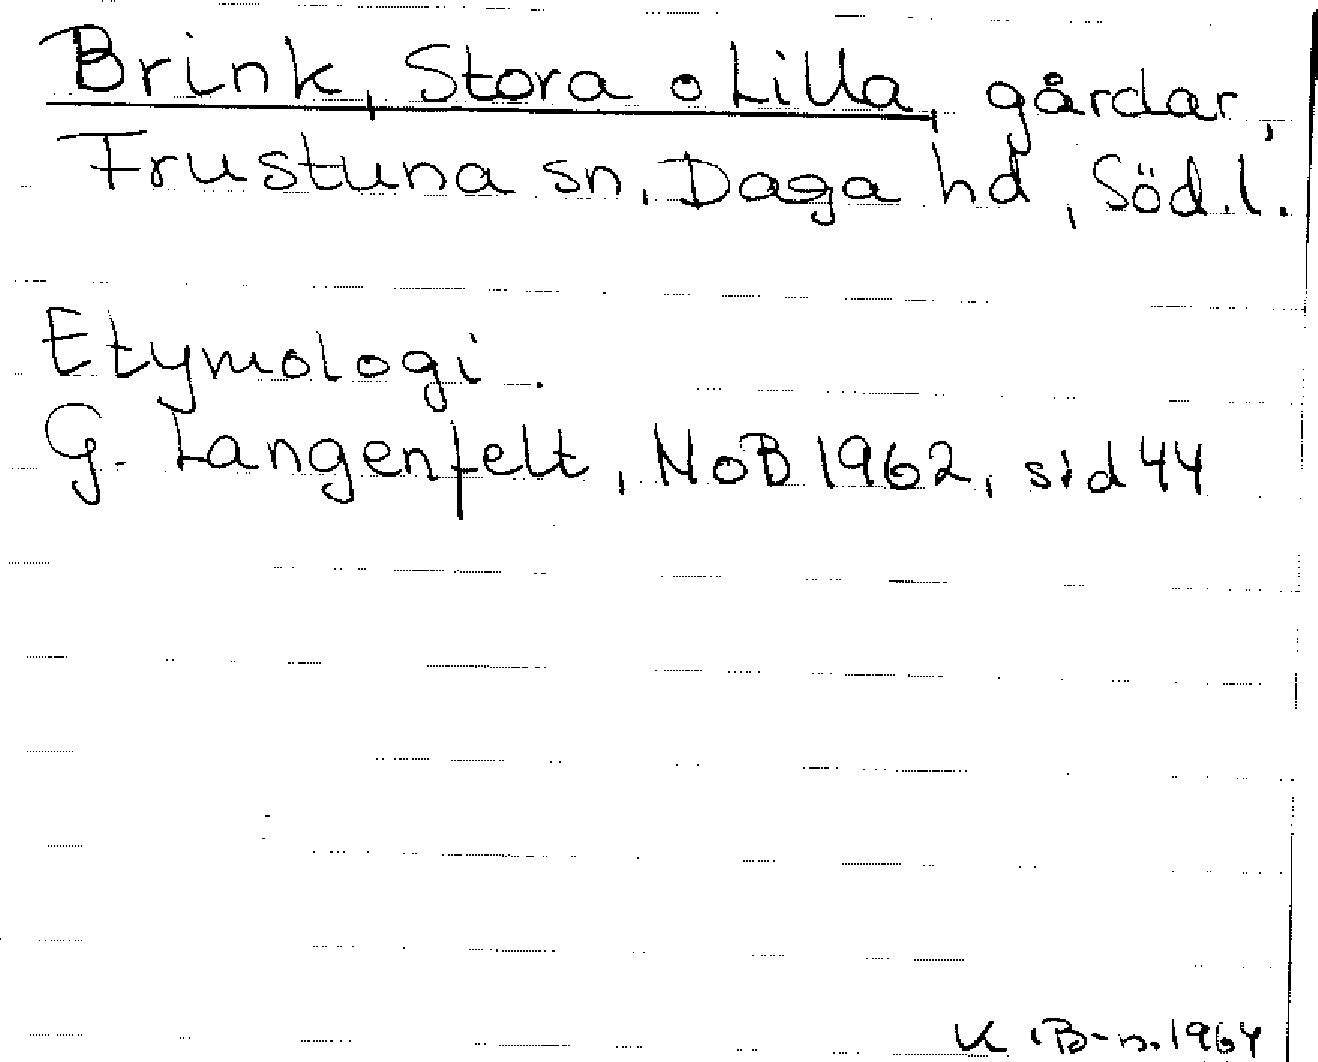 Brink, Stora o Lilla, gårdar,
Frustuna sn, Daga hd, Söd.l.
Etymologi.
G. Langenfelt, NoB 1962, sid 44
K. B-n. 1964